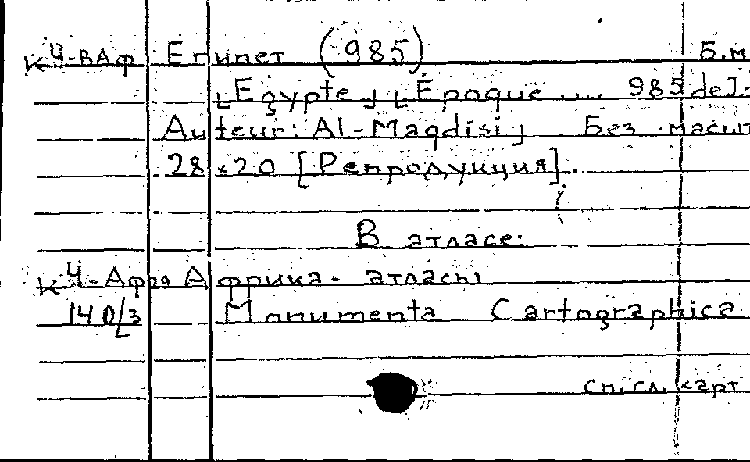 К Ч-ВАФ Египет (985) Б.м
[Egypte] [Epoque .... 985 de J.
Auteur: Al-Maqdisi] Без масшт
28×20 [Репродукция].
В атласе:
К Ч-Афр Африка - атласы
140/3 Monumenta Cartographica
сп. сл. карт